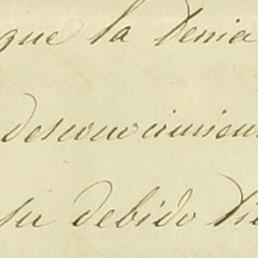 que la Tenia
desconocimien
su debido Tie